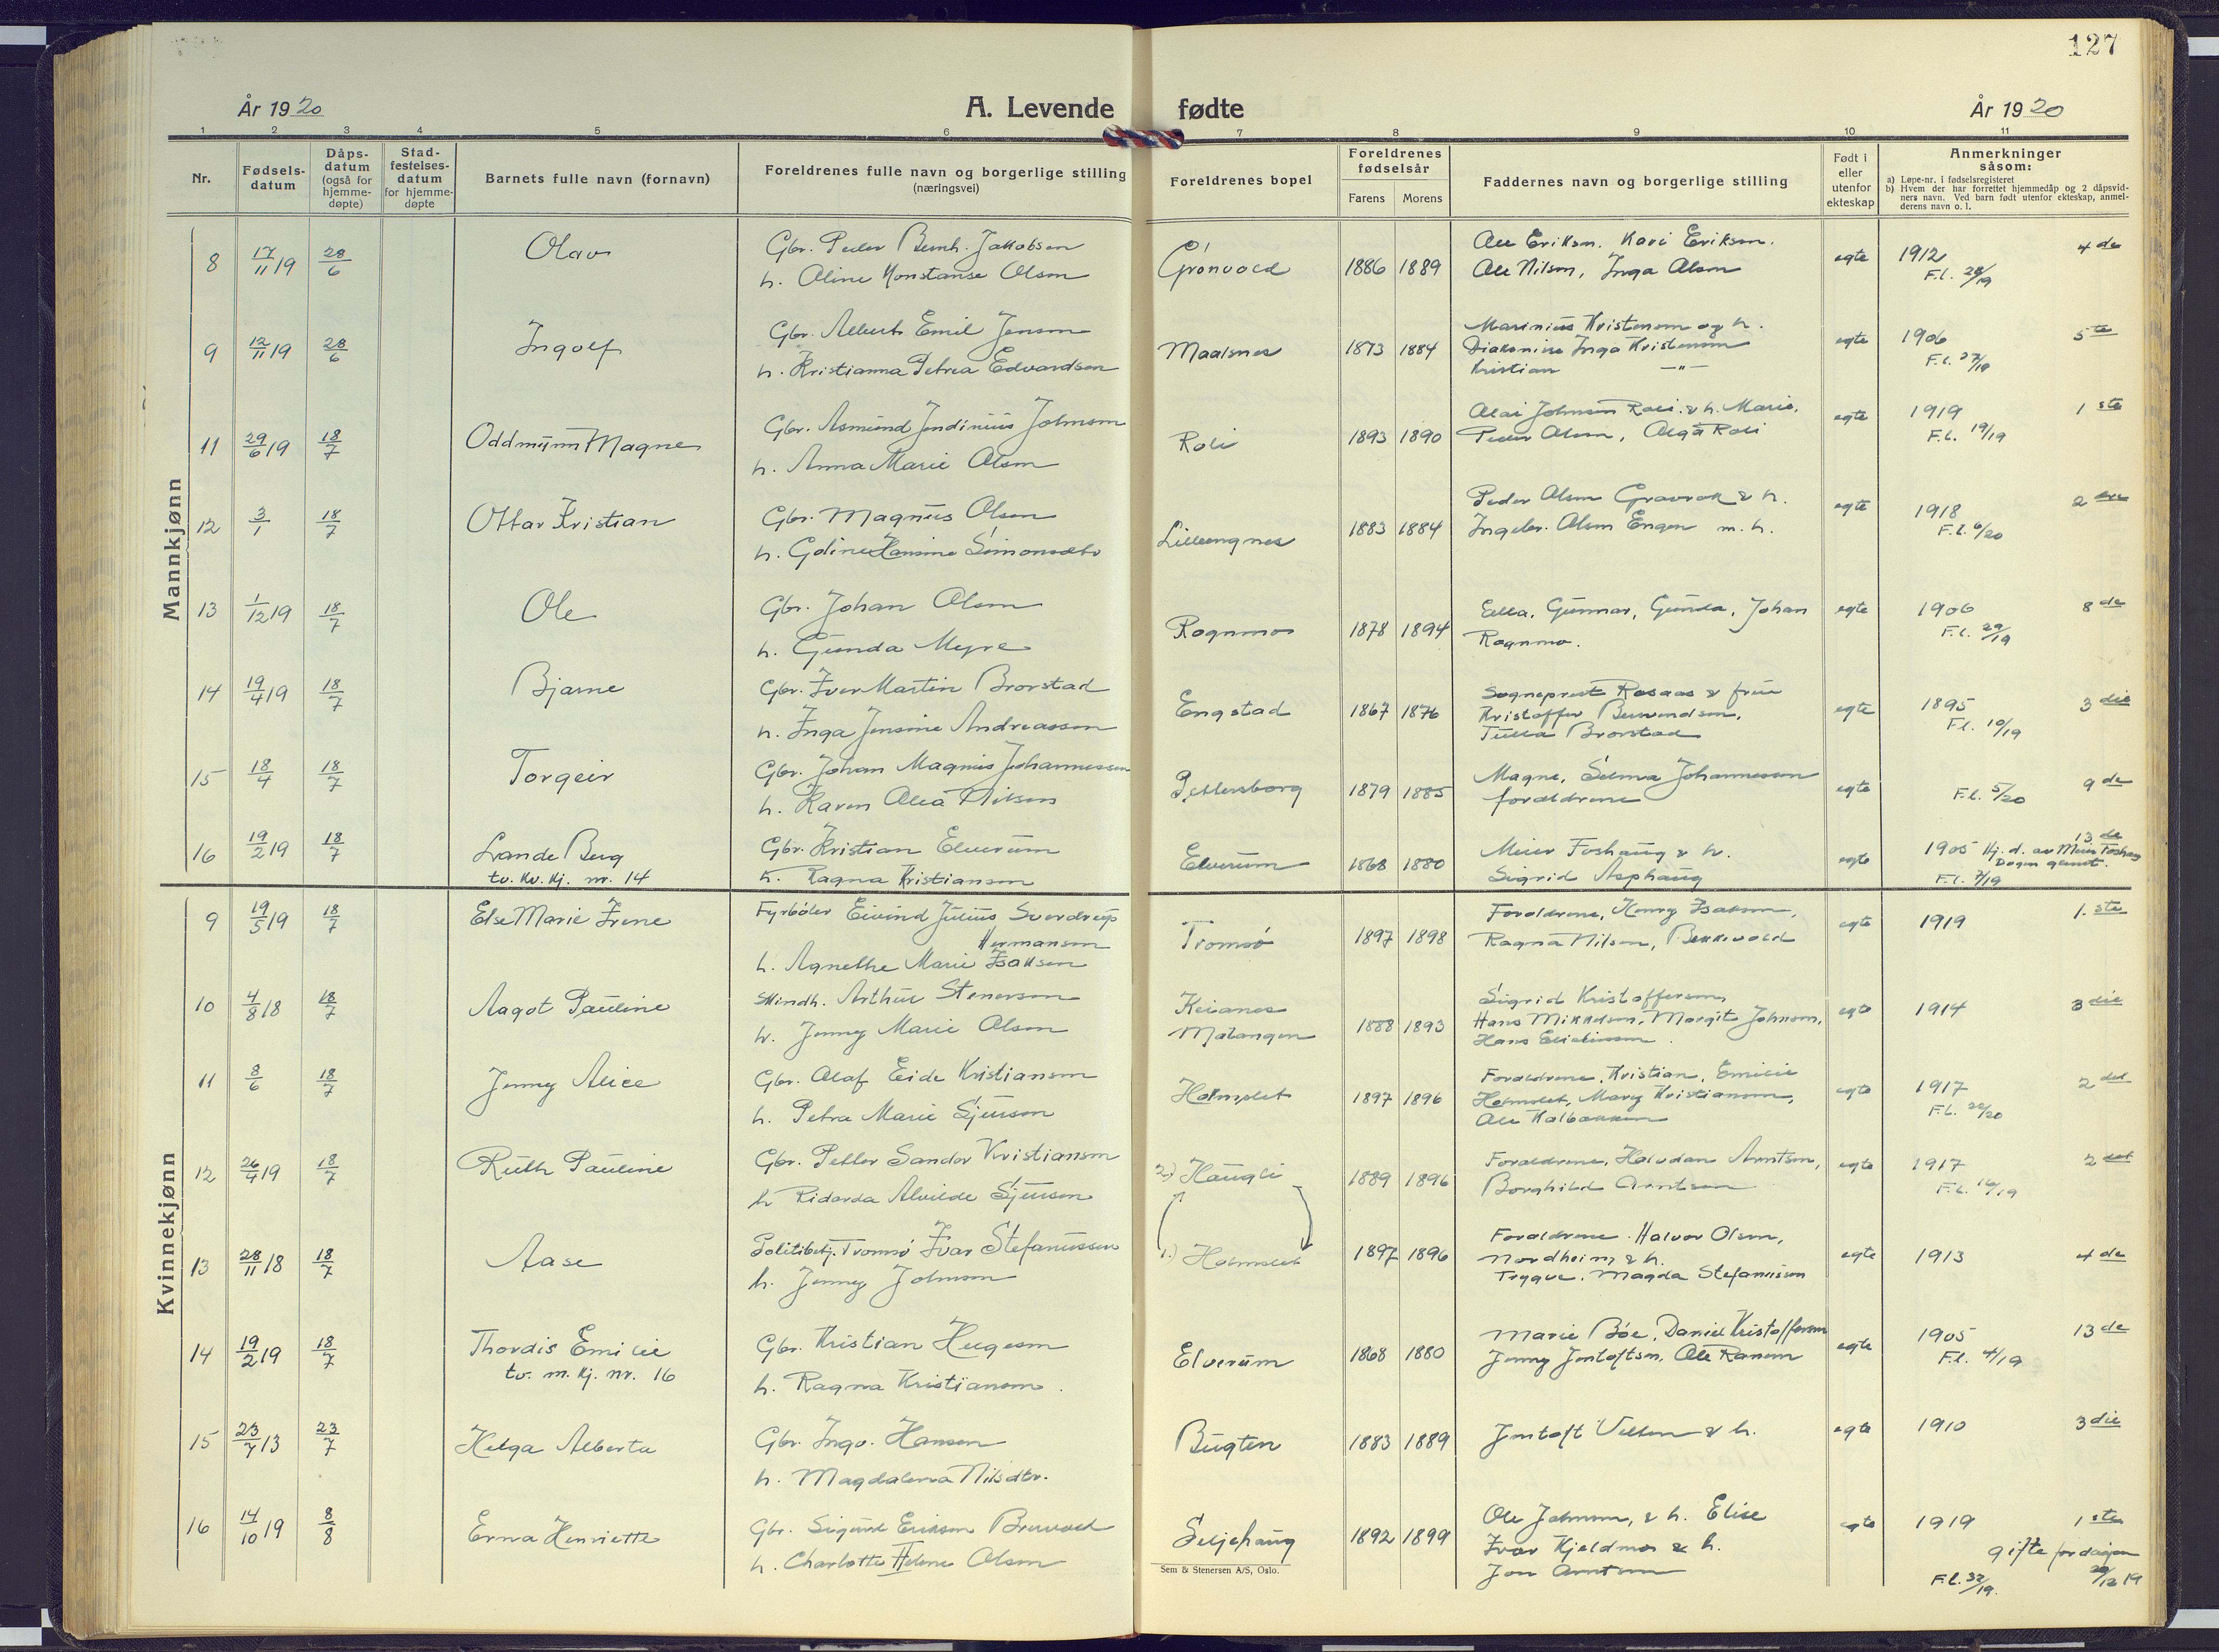 127
År 1920
A. Levende fødte
År 1920
1 2 3 4 5 6 7 8 9 10 11
Nr.
Fødsels-
datum
Dåps-
datum
(også for
hjemme-
døpte)
Stad-
festelses-
datum
for hjemme-
døpte
Barnets fulle navn (fornavn)
Foreldrenes fulle navn og borgerlige stilling
(næringsvei)
Foreldrenes bopel
Foreldrenes
fødselsår
Farens Morens
Faddernes navn og borgerlige stilling
Født i
eller
utenfor
ekteskap
Anmerkninger
såsom:
a) Løpe-nr. i fødselsregisteret
b) Hvem der har forrettet hjemmedåp og 2 dåpsvid-
ners navn. Ved barn født utenfor ekteskap, anmel-
derens navn o. l.
Mannkjønn
8 17/11 19 28/6 Olav
Gbr. Peder Bernh. Jakobsen
h. Oline Konstanse Olsen
Grønvold 1886 1889
Ole Eriksen. Kari Eriksen.
Ole Nilsen, Inga Olsen
egte 1912 4de
F.l. 28/19
9 12/11 19 28/6 Ingolf
Gbr. Albert Emil Jensen
h. Kristianna Petrea Edvardsen
Maalsnes 1873 1884
Marinius Kristensen og h.
Diakonisse Inga Kristensen
Kristian —"—
egte 1906 5te
F.l. 27/19
11 29/6 19 18/7 Oddmunn Magne
Gbr. Asmund Jendinius Johnsen
h. Anna Marie Olsen
Roli 1893 1890
Olai Johnsen Roli. & h. Marie.
Peder Olsen, Olga Roli
egte 1919 1ste
F.l. 19/19
12 3/1 18/7 Ottar Kristian
Gbr. Magnus Olsen
h. Goline Hansine Simonsdtr
Lilleengnes 1883 1884
Peder Olsen Gravrok & h.
Ingebr. Olsen Engen m. h.
egte 1918 2
F.l. 6/20
13 1/12 19 18/7 Ole
Gbr. Johan Olsen
h. Gunda Myre
Rognmo 1878 1894
Ella, Gunnar, Gunda, Johan
Rognmo.
egte 1906 8de
F.l. 29/19
14 19/4 19 18/7 Bjarne
Gbr. Iver Martin Brorstad
h. Inga Jensine Andreassen
Engstad 1867 1876
Sogneprest Rosaas & frue
Kristoffer Berntsen,
Tulla Brorstad
egte 1895 3die
F.l. 10/19
15 18/4 18/7 Torgeir
Gbr. Johan Magnus Johannessen
h. Karen Olea Nilsen
Pettersborg 1879 1885
Magne, Selma Johannessen
foreldrene
egte 9de
F.l. 5/20
16 19/2 19 18/7 Lrande Berg
tv. kv. kj. nr. 14
Gbr. Kristian Elverum
h. Ragna Kristiansen
Elverum 1868 1880
Meier Foshaug & h.
Sigrid Asphaug
egte 1905 13de
Hj. d. av Meier Foshaug
F.l. 3/19
Kvinnekjønn
9 19/5 19 18/7 Else Marie Irene
Fyrbøter Eivind Julius Sverdrup
Hermansen
h. Agnethe Marie Isaksen
Tromsø 1897 1898
Foreldrene, Henry Isaksen,
Ragna Nilsen, Bekkevold
egte 1919 1.ste
10 4/8 18 18/7 Aagot Pauline
Skindh. Arthur Stenersen
h. Jenny Marie Olsen
Keianes
Malangen 1888 1893
Sigrid Kristoffersen,
Hans Mikkelsen, Margit Johnsen,
Hans Eliseussen.
egte 1914 3die
11 8/6 18/7 Jenny Alice
Gbr. Olaf Eide Kristiansen
h. Petra Marie Sjursen
Holmslet 1897 1896
Foreldrene, Kristian, Emilie
Holmslet, Mary Kristiansen,
Ole Kalbakken
egte 1917 2det
F.l. 22/20
12 26/4 19 18/7 Ruth Pauline
Gbr. Petter Sandor Kristiansen
h Ridarda Alvilde Sjursen
2) Haugli 1889 1896
Foreldrene, Halvdan Arntsen,
Borghild Arntsen
egte 1917 2det
F.l. 16/19
13 28/11 18 18/7 Aase
Politibetj. Tromsø Ivar Stefanussen
h. Jenny Johnsen
1.) Holmslet 1897 1896
Foreldrene. Halvor Olsen,
Nordheim & h.
Trygve. Magda Stefanussen
egte 1913 4de
14 19/2 19 18/7 Thordis Emilie
tv. m. kj. nr. 16
Gbr. Kristian Helgesen
h. Ragna Kristiansen.
Elverum 1868 1880
Marie Bøe, Daniel Kristoffersen
Jenny Jentoftsen. Ole Ransen
egte 1905 13de
F.l. 4/19
15 23/7 13 23/7 Helga Alberta
Gbr. Ingv. Hansen
h. Magdalena Nilsdtr.
Bugten 1883 1889
Jentoft Nilsen & h.
egte 1910 3die
16 14/10 19 8/8 Erna Henriette
Gbr. Sigurd Eriksen Bruvold
h. Charlotte Helene Olsen
Seljehaug 1892 1899
Ole Johnsen, & h. Elise
Ivar Kjeldmo & h.
Jon Arntsen
egte 1919 1ste
gifte før dagen
F.l. 32/19. 29/12 19
Sem & Stenersen A/S, Oslo.